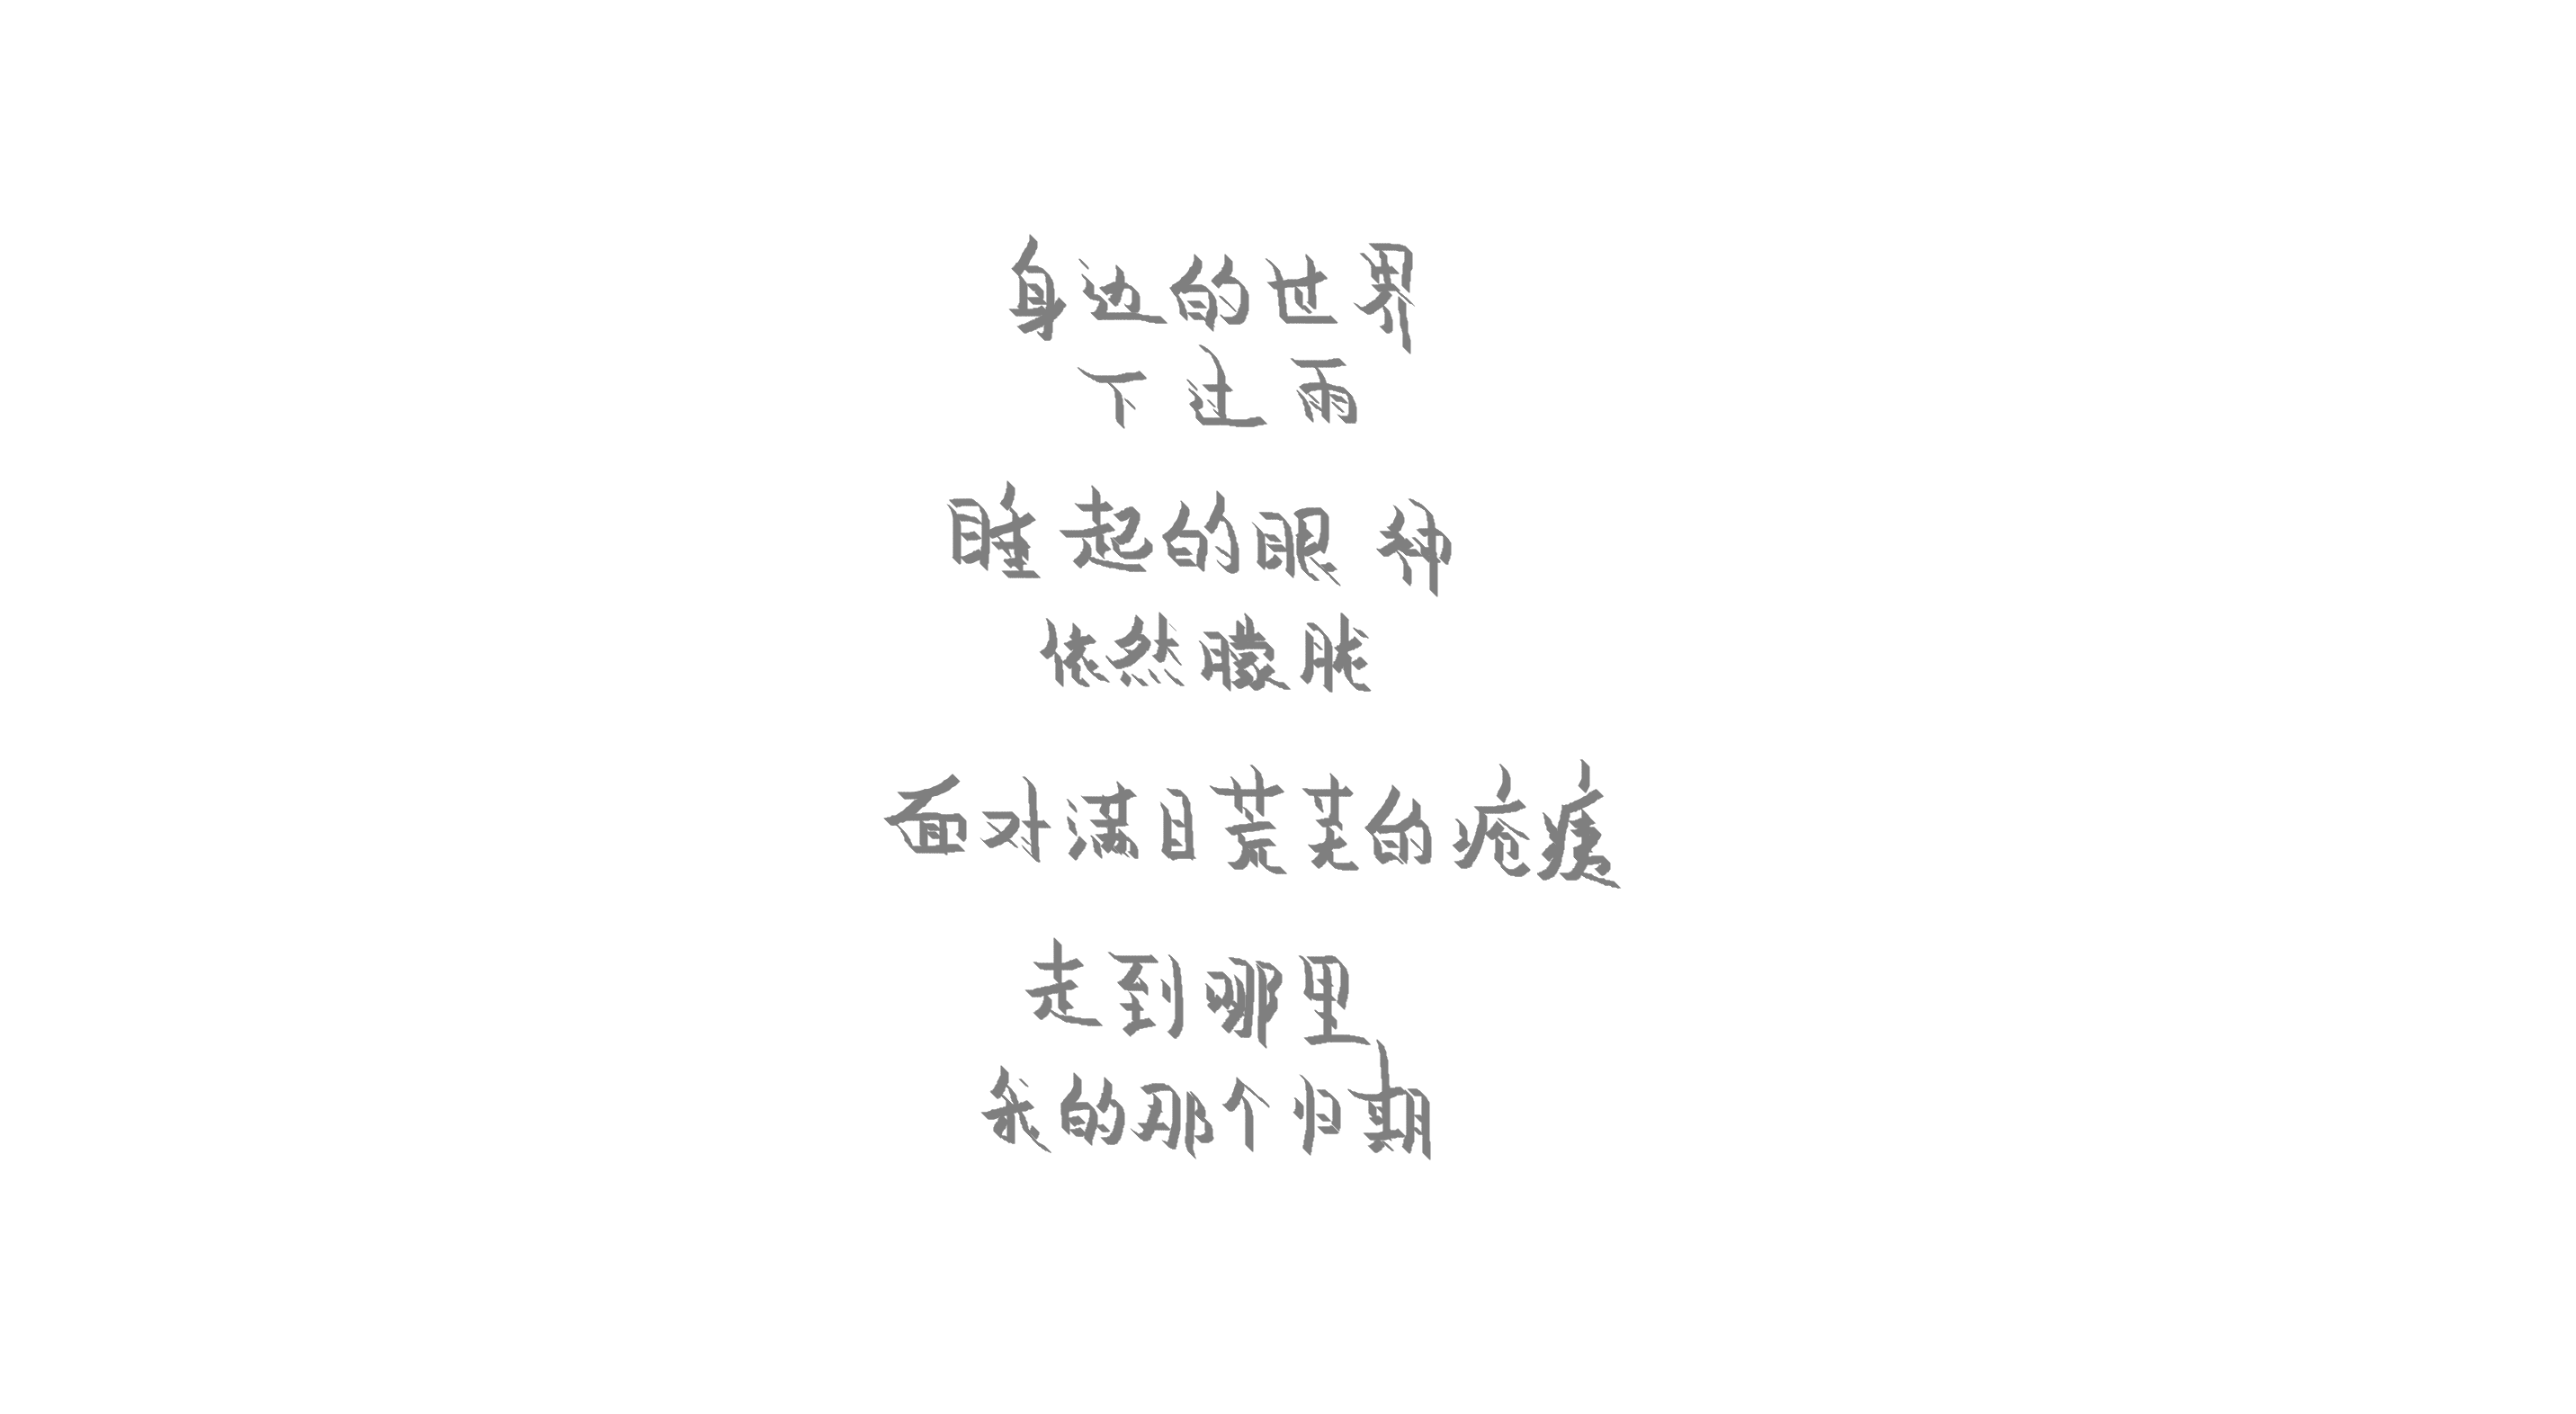 身边的世界
下过雨
睡起的眼神
依然朦胧
面对满目荒芜的疮痍
走到哪里
我的那个归期